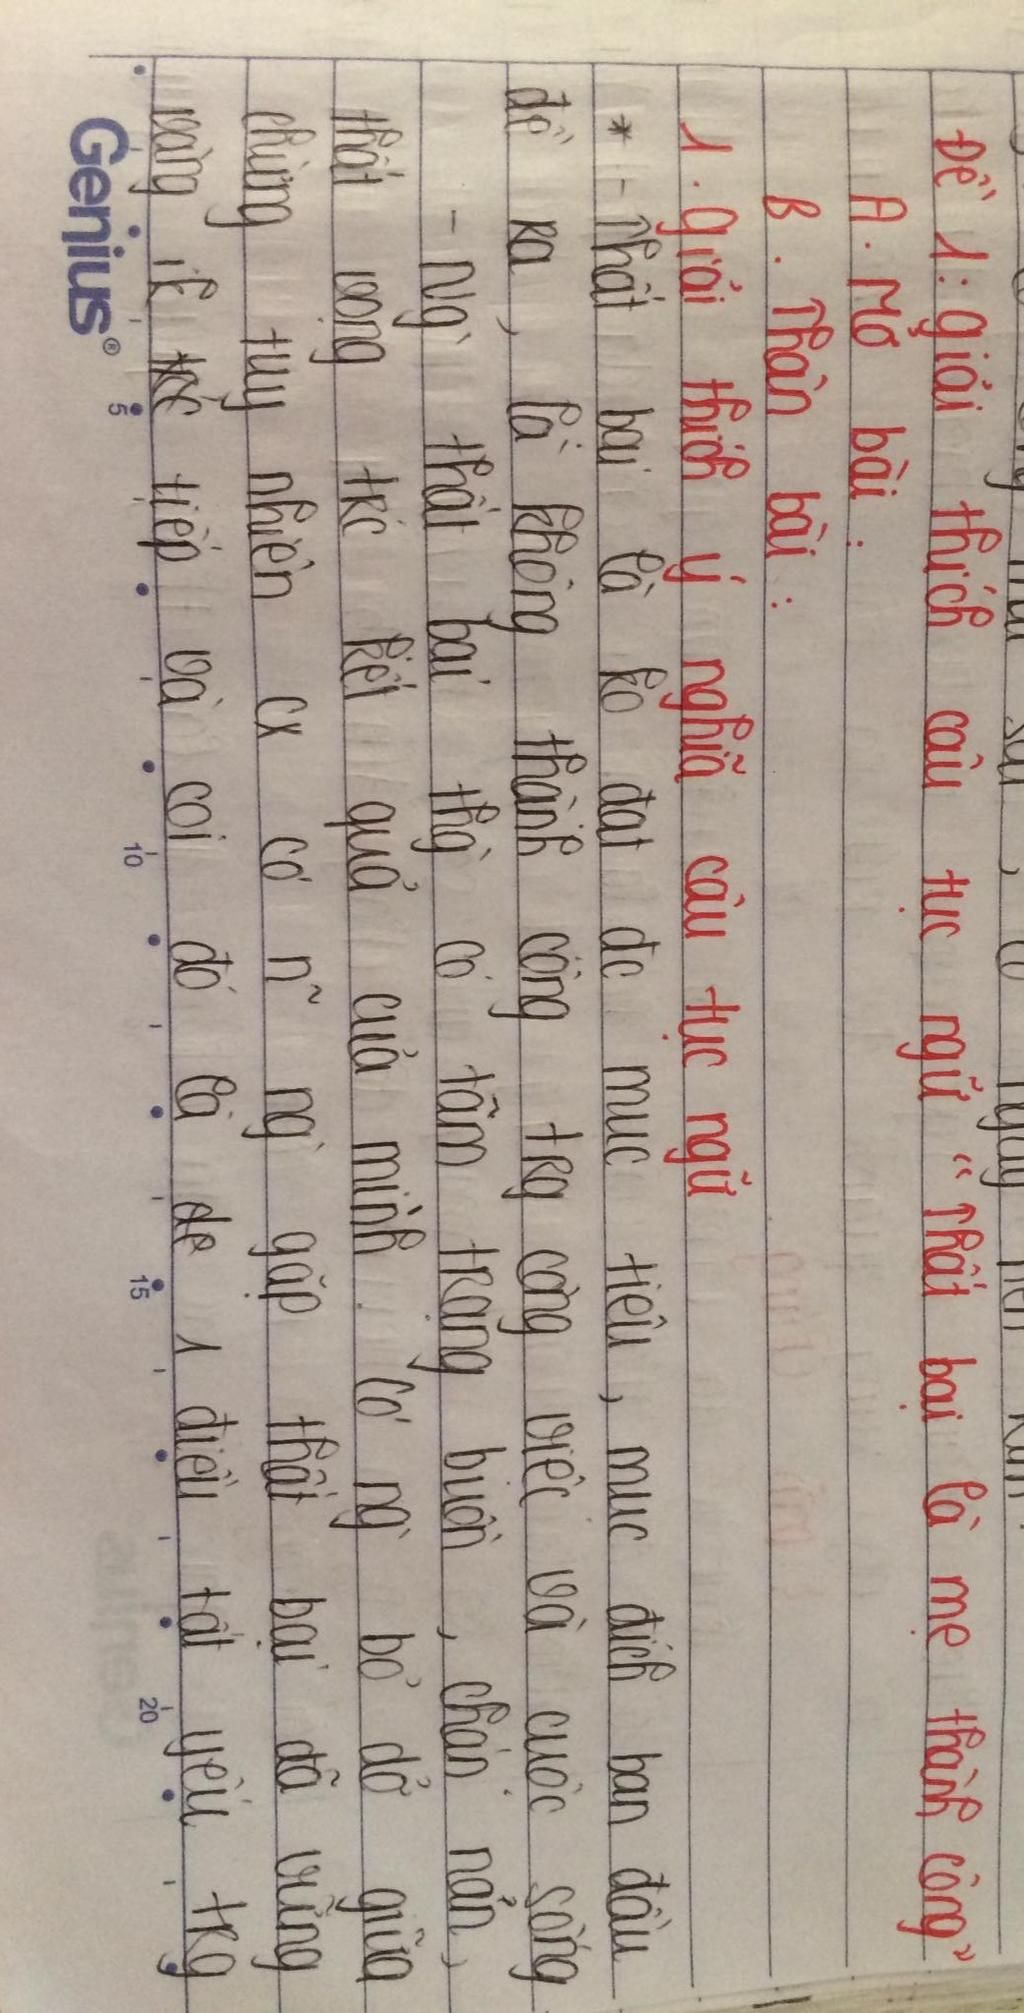 Đề 1: giải thích câu tục ngữ “Thất bại là mẹ thành công”
A. Mở bài:
B. Thân bài:
1. giải thích ý nghĩa câu tục ngữ
* - Thất bại là ko đạt đc mục tiêu, mục đích ban đầu
đề ra, là không thành công trg công việc và cuộc sống
- Ng` thất bại thg` có tâm trạng buồn, chán nản,
thất vọng trc kết quả của mình. Có ng` bỏ dở giữa
chừng tuy nhiên cx có n~ ng` gặp thất bại đã vững
vàng ik tiếp và coi đó là 1 điều tất yếu trg
Genius®
5
10
15
20